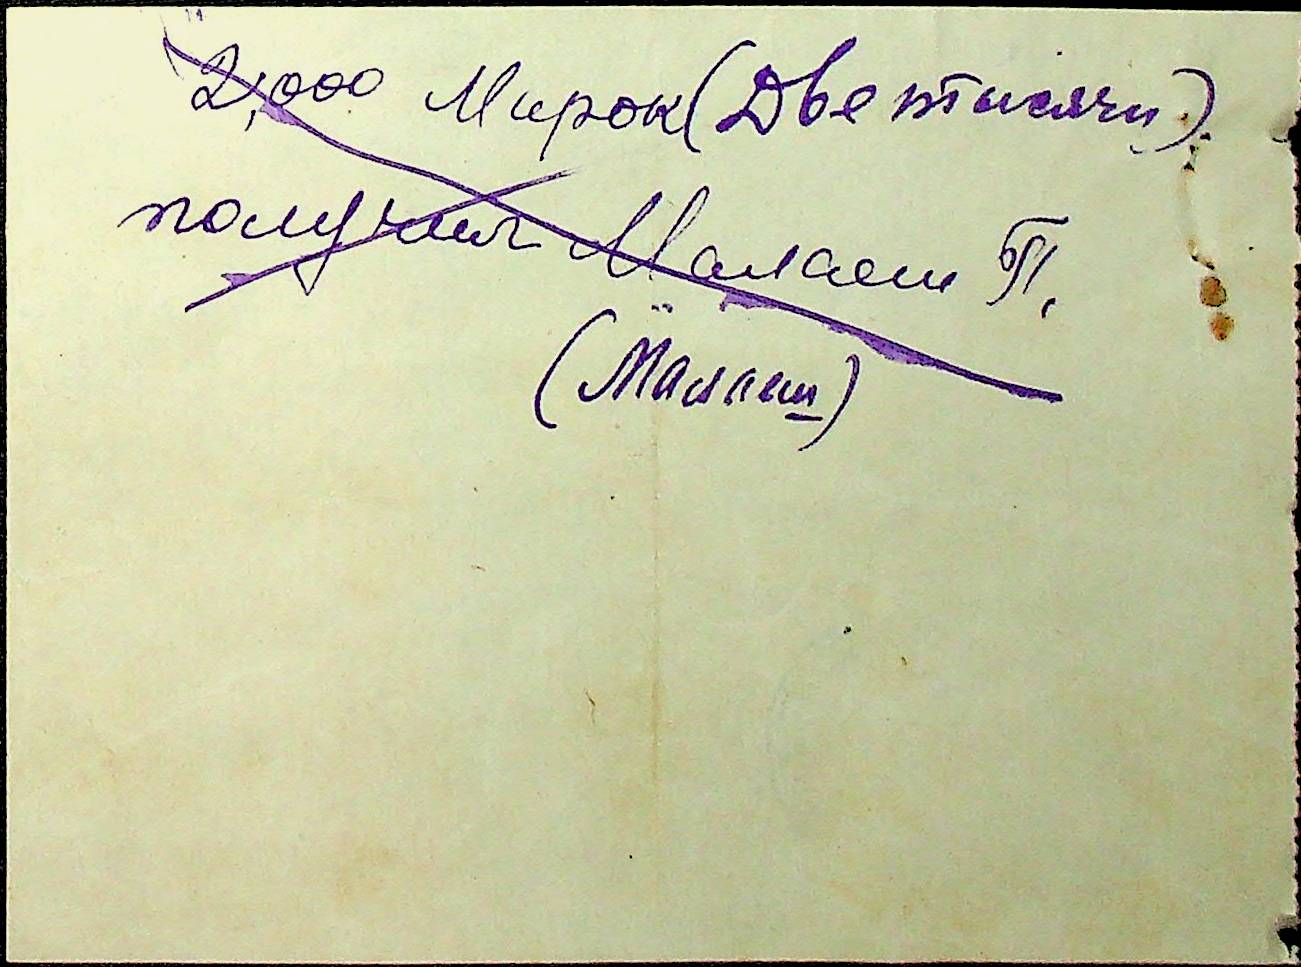 2,000 Марок (Две тысячи).
получил Малаш П.
(Малаш)